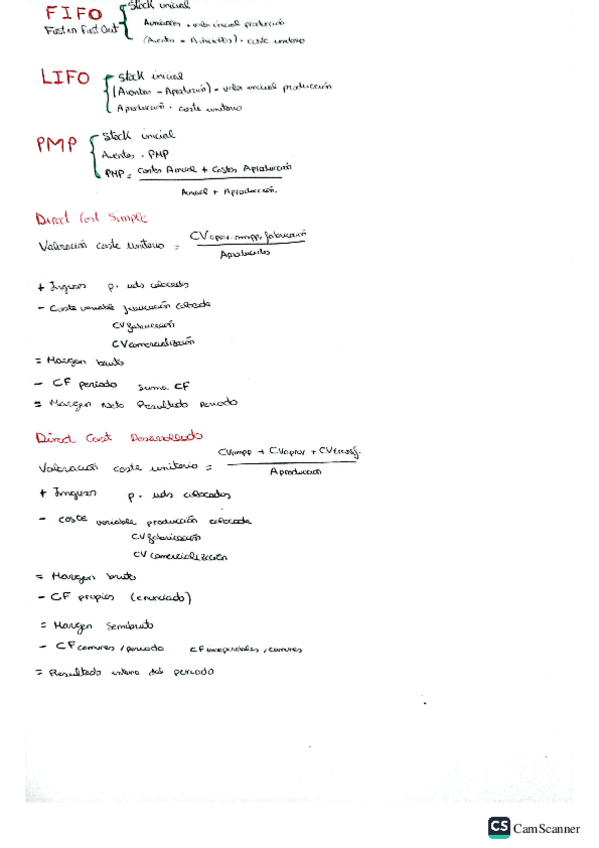 FIFO Stock inicial
First in First Out
coste unitario
LIFO Stock inicial
(Aventas - Aproducción) · valor inicial producción
Aproducción · coste unitario
PMP Stock inicial
Aventas · PMP
PMP = Costes Ainicial + Costes Aproducción
Ainicial + Aproducción
Direct Cost Simple
Valoración coste unitario = CVaprov. mmpp, fabricación
Aproducidos
+ Ingresos p. uds colocados
- Coste variable fabricación colocada
CV fabricación
CV comercialización
= Margen bruto
- CF periodo suma CF
= Margen Neto Resultado periodo
Direct Cost Desarrollado
Valoración coste unitario = CVmmpp + CVaprov +
Aproduccion
+ Ingresos p. uds colocados
- coste variable producción colocada
CV fabricación
CV comercialización
= Margen bruto
- CF propios (enunciado)
= Margen Semibruto
- CF comunes / periodo CF / comunes
= Resultado interno del periodo
CS CamScanner